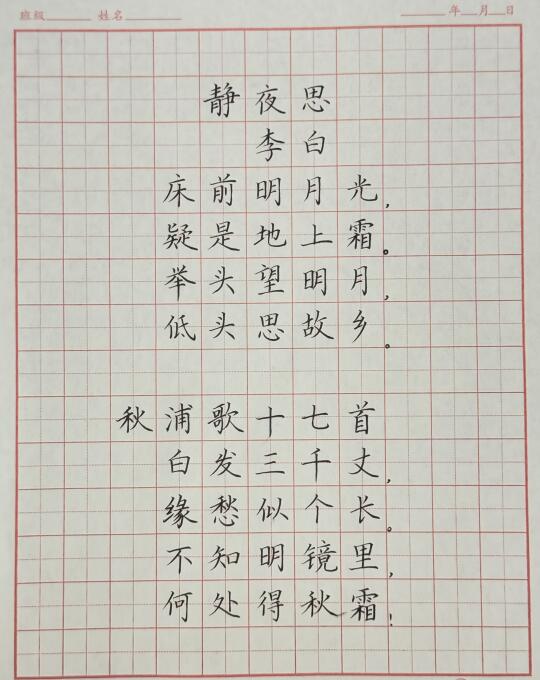 班级 姓名 年 月 日
静夜思
李白
床前明月光，
疑是地上霜。
举头望明月，
低头思故乡。
秋浦歌十七首
白发三千丈，
缘愁似个长。
不知明镜里，
何处得秋霜！